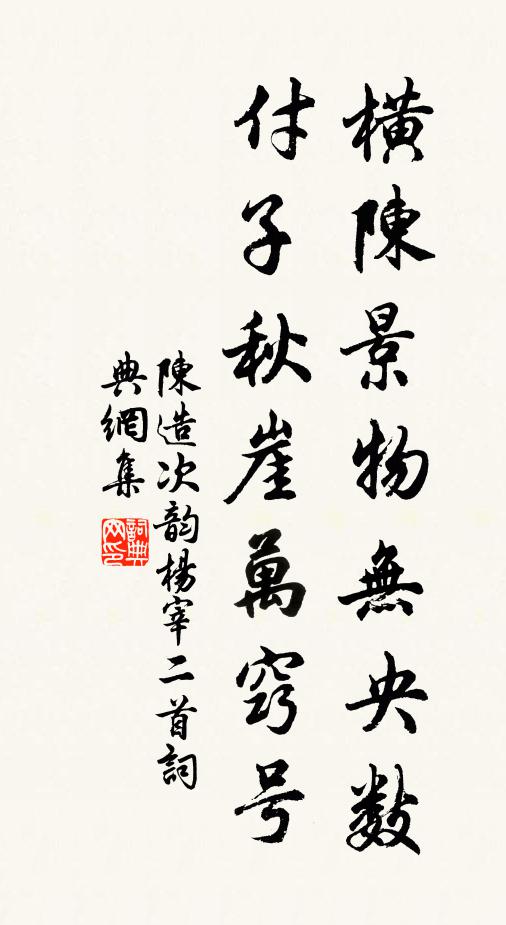 橫陳景物無央數
付子秋崖萬竅号
陳造次韵楊宰二首詞
典網集
詞典网印